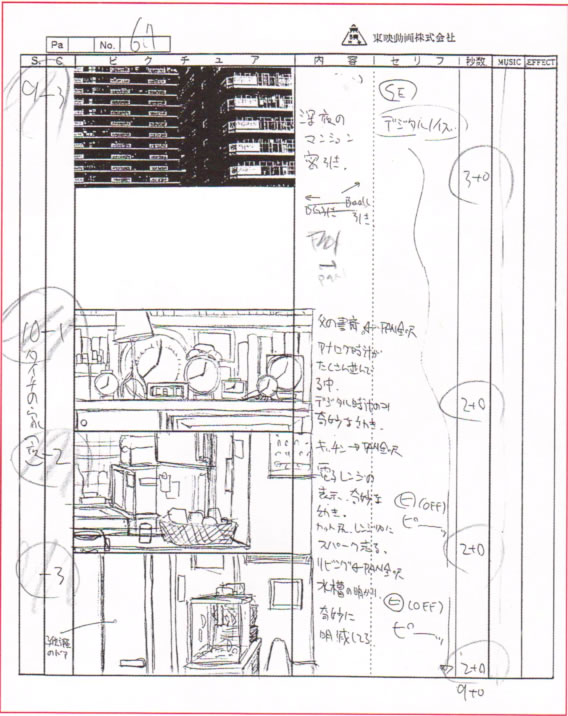 東映動画株式会社
Pa No. 67
S. C. ピクチュア 内容 セリフ 秒数 MUSIC EFFECT
9-3
深夜の
マンション
密引き.
SE
デジタルノイズ.
BG引き Book
引き
PAN
3+0
10-1
タイチの家
夜
父の書斎 PAN
アナログ時計が
たくさん並んで
る中.
デジタル時計のみ
奇妙な動き.
2+0
-2
キッチン→PAN
電子レンジの
表示、奇妙な
動き.
スパーク走る.
(OFF)
ピー
2+0
-3
リビング PAN
水槽の明かり.
奇妙に
明滅してる.
(OFF)
ピー
のドア
2+0
9+0